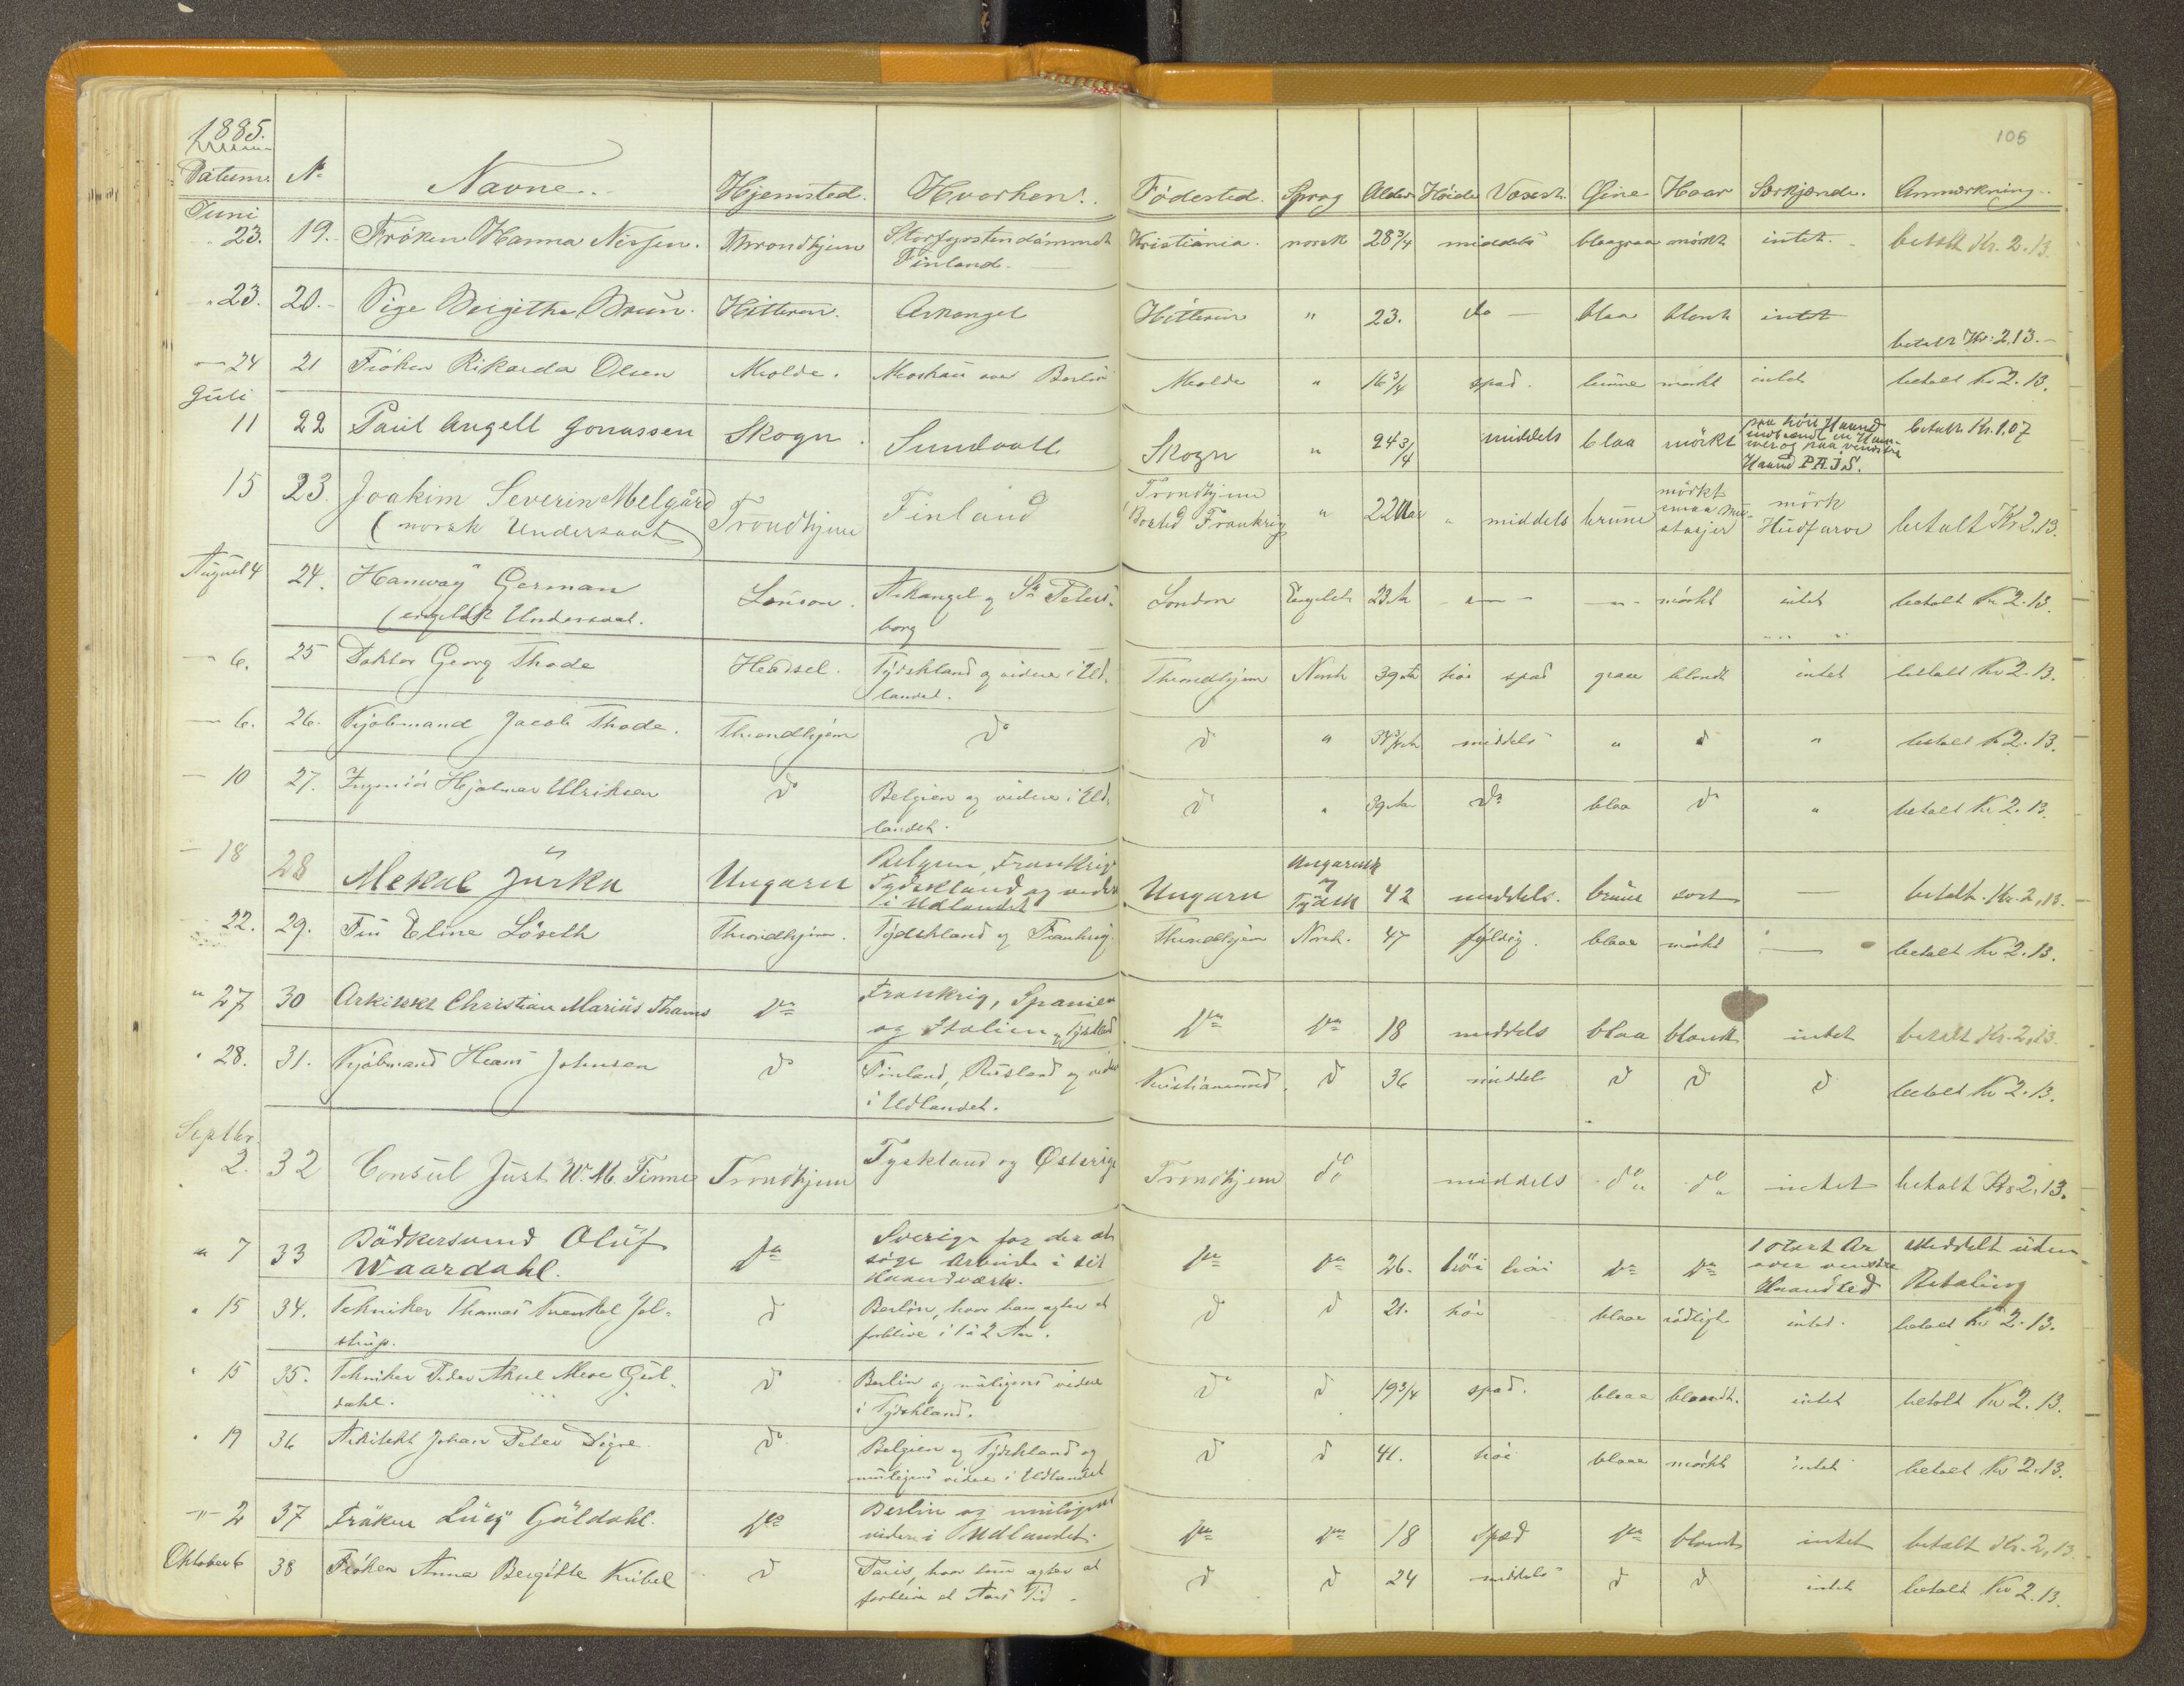 1885.
106
Datum. No Navne. Hjemsted. Hvorhen. Fødested. Sprog Alder Høide Væxst. Øine Haar Særkjende. Anmærkning.
Juni
23. 19. Frøken Hanna Nissen. Throndhjem Storfyrstendømmet Kristiania. norsk 28 3/4 middels blaagraa mørkt intet. betalt Kr. 2.13.
Finland.
" 23. 20. Pige Birgitha Bruun. Hitteren. Arkangel Hitteren " 23. do blaa blondt intet
betalt Kr: 2.13.
24 21 Frøken Rikarda Olsen Molde. Moskau over Berlin Molde " 16 3/4 spæd. brune mørkt intet betalt Kr 2.13.
Juli
11 22 Paul Angell Jonassen Skogn. Sundvall Skogn " 24 3/4 middels blaa mørkt paa høire Haand betalt Kr. 1.07
indbrændt en Ham-
mer og paa venstre
Haand P.A.J.S.
15 23. Joakim Severin Melgård Trondhjem Finland Trondhjem " 22 Aar " middels brune mørkt mörk betalt Kr 2.13.
(norsk Undersaat) Bosted Frankrig smaa Mu- Hudfarve
stasjer
August 4 24. Hanway German London. Arkangel og St. Peters- London Engelsk 23 Ar - " - - " - mørkt intet betalt Kr 2.13.
(engelsk Undersaat. borg
6. 25 Doktor Georg Thode Hadsel. Tydskland og videre i Ud- Throndhjem Norsk 39 Ar høi spæd graa blondt intet betalt Kr 2.13.
landet.
6. 26. Kjøbmand Jacob Thode. Throndhjem do do " middels " do " betalt Kr 2.13.
10 27. Ingeniør Hjalmar Ulriksen do Belgien og videre i Ud- do " 39 Aar do blaa do " betalt Kr 2.13.
landet.
18 28 Mekal Jurka Ungarn Belgien, Frankrig Ungarn Ungarnsk 42 middels. brune sort — betalt. Kr. 2,13.
Tydskland og videre og
i Udlandet Tydsk
22. 29. Fru Eline Löseth Throndhjem. Tydskland og Frankrig. Throndhjem Norsk. 47 fyldig. blaae mørkt — betalt Kr 2.13.
" 27 30 Arkitekt Christian Marius Thams do Frankrig, Spanien do do 18 middels blaa blondt intet betalt Kr. 2,13.
og Italien
" 28. 31. Kjøbmand Johnsen do Finland, Rusland og videre Kristiansund. do 36 middels do do do betalt Kr 2.13.
i Udlandet.
Septbr.
2. 32 Consul Just W. M. Finne Trondhjem Tyskland og Østerig Trondhjem do middels do do intet betalt Kr 2,13.
" 7 33 Bødkersvend Oluf do Sverige for der at do do 26. høi høi do do 1 stort Ar Meddelt uden
Waardahl. søge Arbeide i sit over venstre Betaling
Haandværk. Haandled
" 15 34. Tekniker Thomas Jel- do Berlin, hvor han agter at do do 21. høi blaae rødligt intet. betalt Kr 2.13.
strup. forblive i 1 à 2 Aar.
" 15 35. Tekniker Peder Gul- do Berlin og muligens videre do do 19 3/4 spæd. blaae blondt. intet betalt Kr 2.13.
dahl. i Tydskland.
" 19 36 Arkitekt Johan Peter Digre do Belgien og Tydskland og do do 41. høi blaae mørkt intet betalt Kr 2.13.
muligens videre i Udlandet
" 2 37 Frøken Lucy Guldahl. do Berlin og muligens do do 18 spæd do blondt intet betalt Kr. 2,13.
videre i Udlandet.
Oktober 6 38 Frøken Anna Bergitte do Paris, hvor hun agter at do do 24 middels do do intet betalt Kr 2.13.
forblive et Aars Tid.